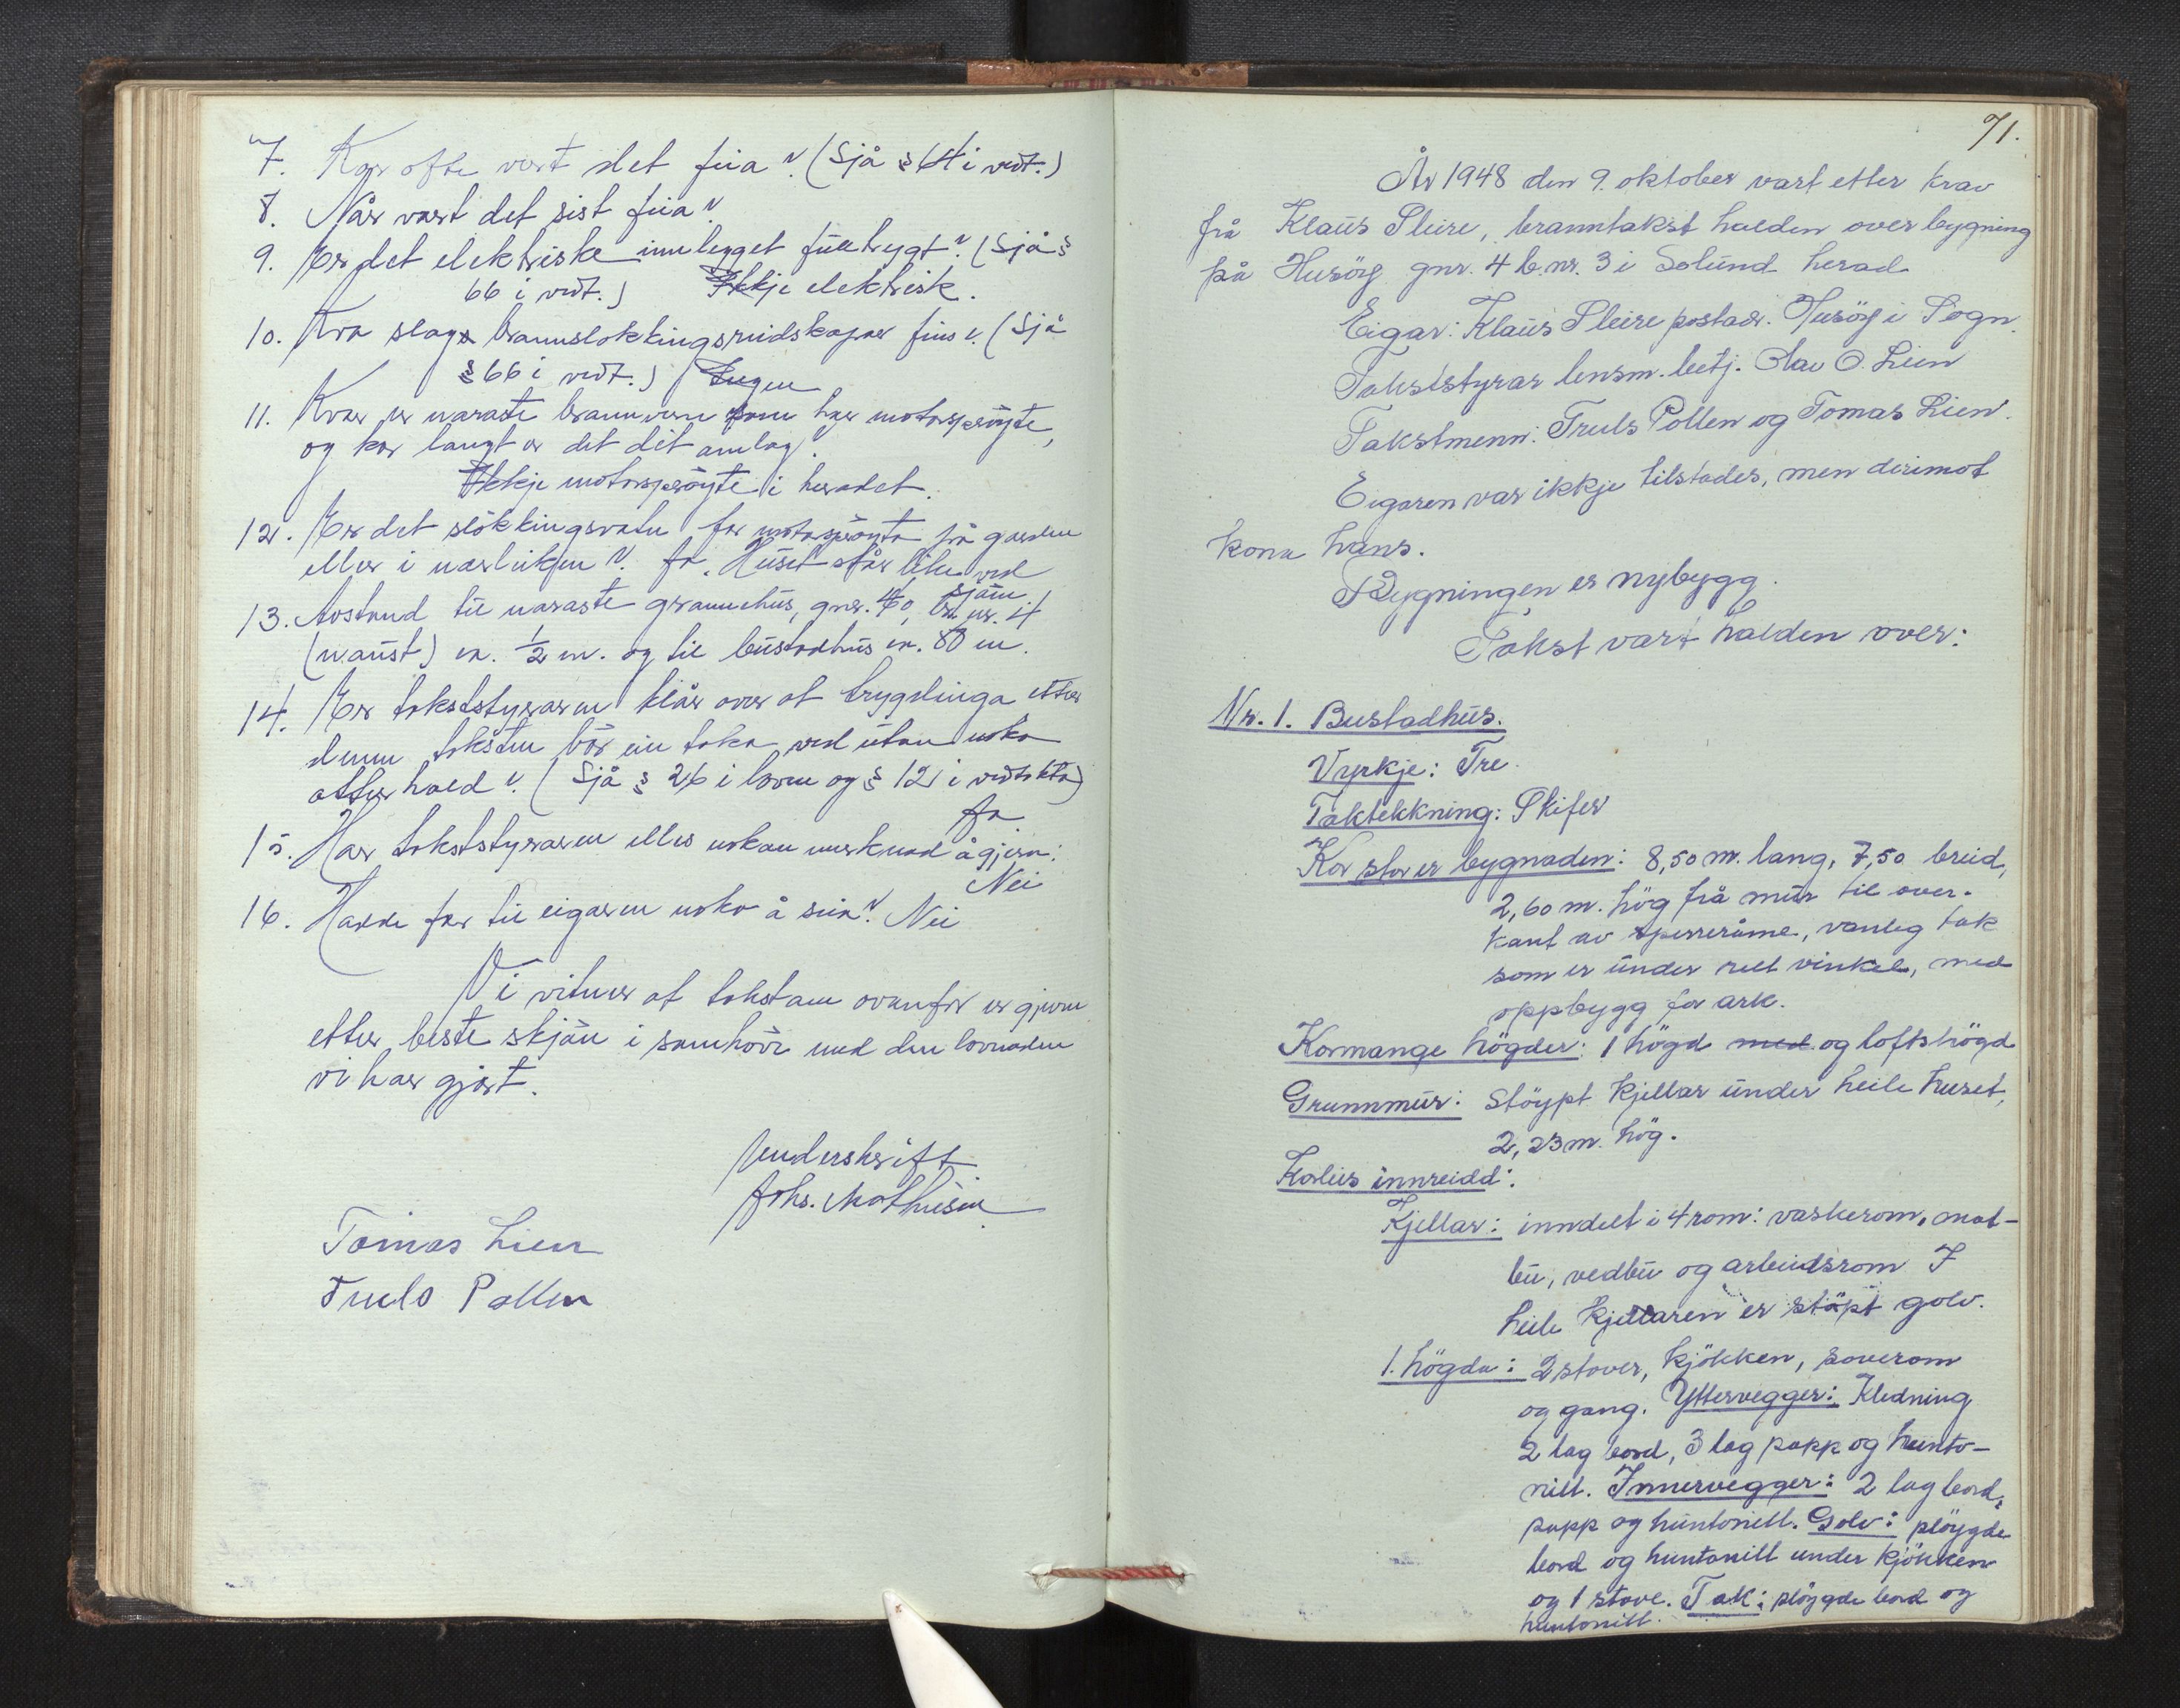 7. Kor ofte vert det feia? (Sjå § 64 i vedt.)
8. Når vart det sist feia?
9. Er det elektriske innlegget fulltrygt? (Sjå §
66 i vedt.) Ikkje elektrisk.
10. Kva slags brannsløkkingsreidskapar fins? (Sjå
§ 66 i vedt.) Ingen
11. Kvar er næraste brannvern som har motorsprøyte,
og kor langt er det dit omlag?
Ikkje motorsprøyte i heradet.
12. Er det sløkkingsvatn for motorsprøyta på garden
eller i nærleiken? Ja. Huset står like ved
sjøen
13. Avstand til næraste grannehus, gnr. 40, br.nr. 4
(naust) ca. 1/2 m. og til bustadhus ca. 80 m.
14. Er takststyraren klår over at trygdinga etter
denne taksten bør ein taka ved utan noko
atterhald? (Sjå § 26 i lovene og § 12 i vedtekta)
Ja
15. Har takststyraren elles nokon merknad å gjera:
Nei
16. Hadde for til eigaren noko å seia? Nei
Vi vitner at takstane ovanfor er gjevne
etter beste skjøn i samhøve med den lovnaden
vi har gjort.
Underskrift
Johs. Mathiesen
Tomas Lien
Truls Pollen
71.
År 1948 den 9. oktober vart etter krav
frå Klaus Pleire, branntakst halden over bygning
på Husöy gnr. 4 b.nr. 3 i Solund herad
Eigar: Klaus Pleire postadr. Husöy i Sogn.
Takststyrar lensm. betj. Olav O. Lien
Takstmenn: Truls Pollen og Tomas Lien.
Eigaren var ikkje tilstades, men derimot
kona hans.
Bygningen er nybygg.
Takst vart halden over:
Nr. 1. Bustadhus.
Vyrkje: Tre.
Taktekkning: Skifer
Kor stor er bygnaden: 8,50 m. lang, 7,50 breid,
2,60 m. hög frå mur til over-
kant av sperreråme, vanleg tak
som er under rett vinkel, med
oppbygg for ark.
Kormange högder: 1 högd med og loftshögd
Grunnmur: Stöypt kjellar under heile huset,
2,23 m. hög.
Korleis innreidd:
Kjellar: inndelt i 4 rom: vaskerom, mat-
bu, vedbu og arbeidsrom I
heile kjellaren er stöpt golv.
1. högda: 2 stover, kjökken, soverom
og gang. Yttervegger: Kledning
2 lag bord, 3 lag papp og hunto-
nitt. Innervegger: 2 lag bord,
papp og huntonitt. Golv: plöygde
bord og huntonitt under kjökken
og 1 stove. Tak: plöygde bord og
huntonitt.